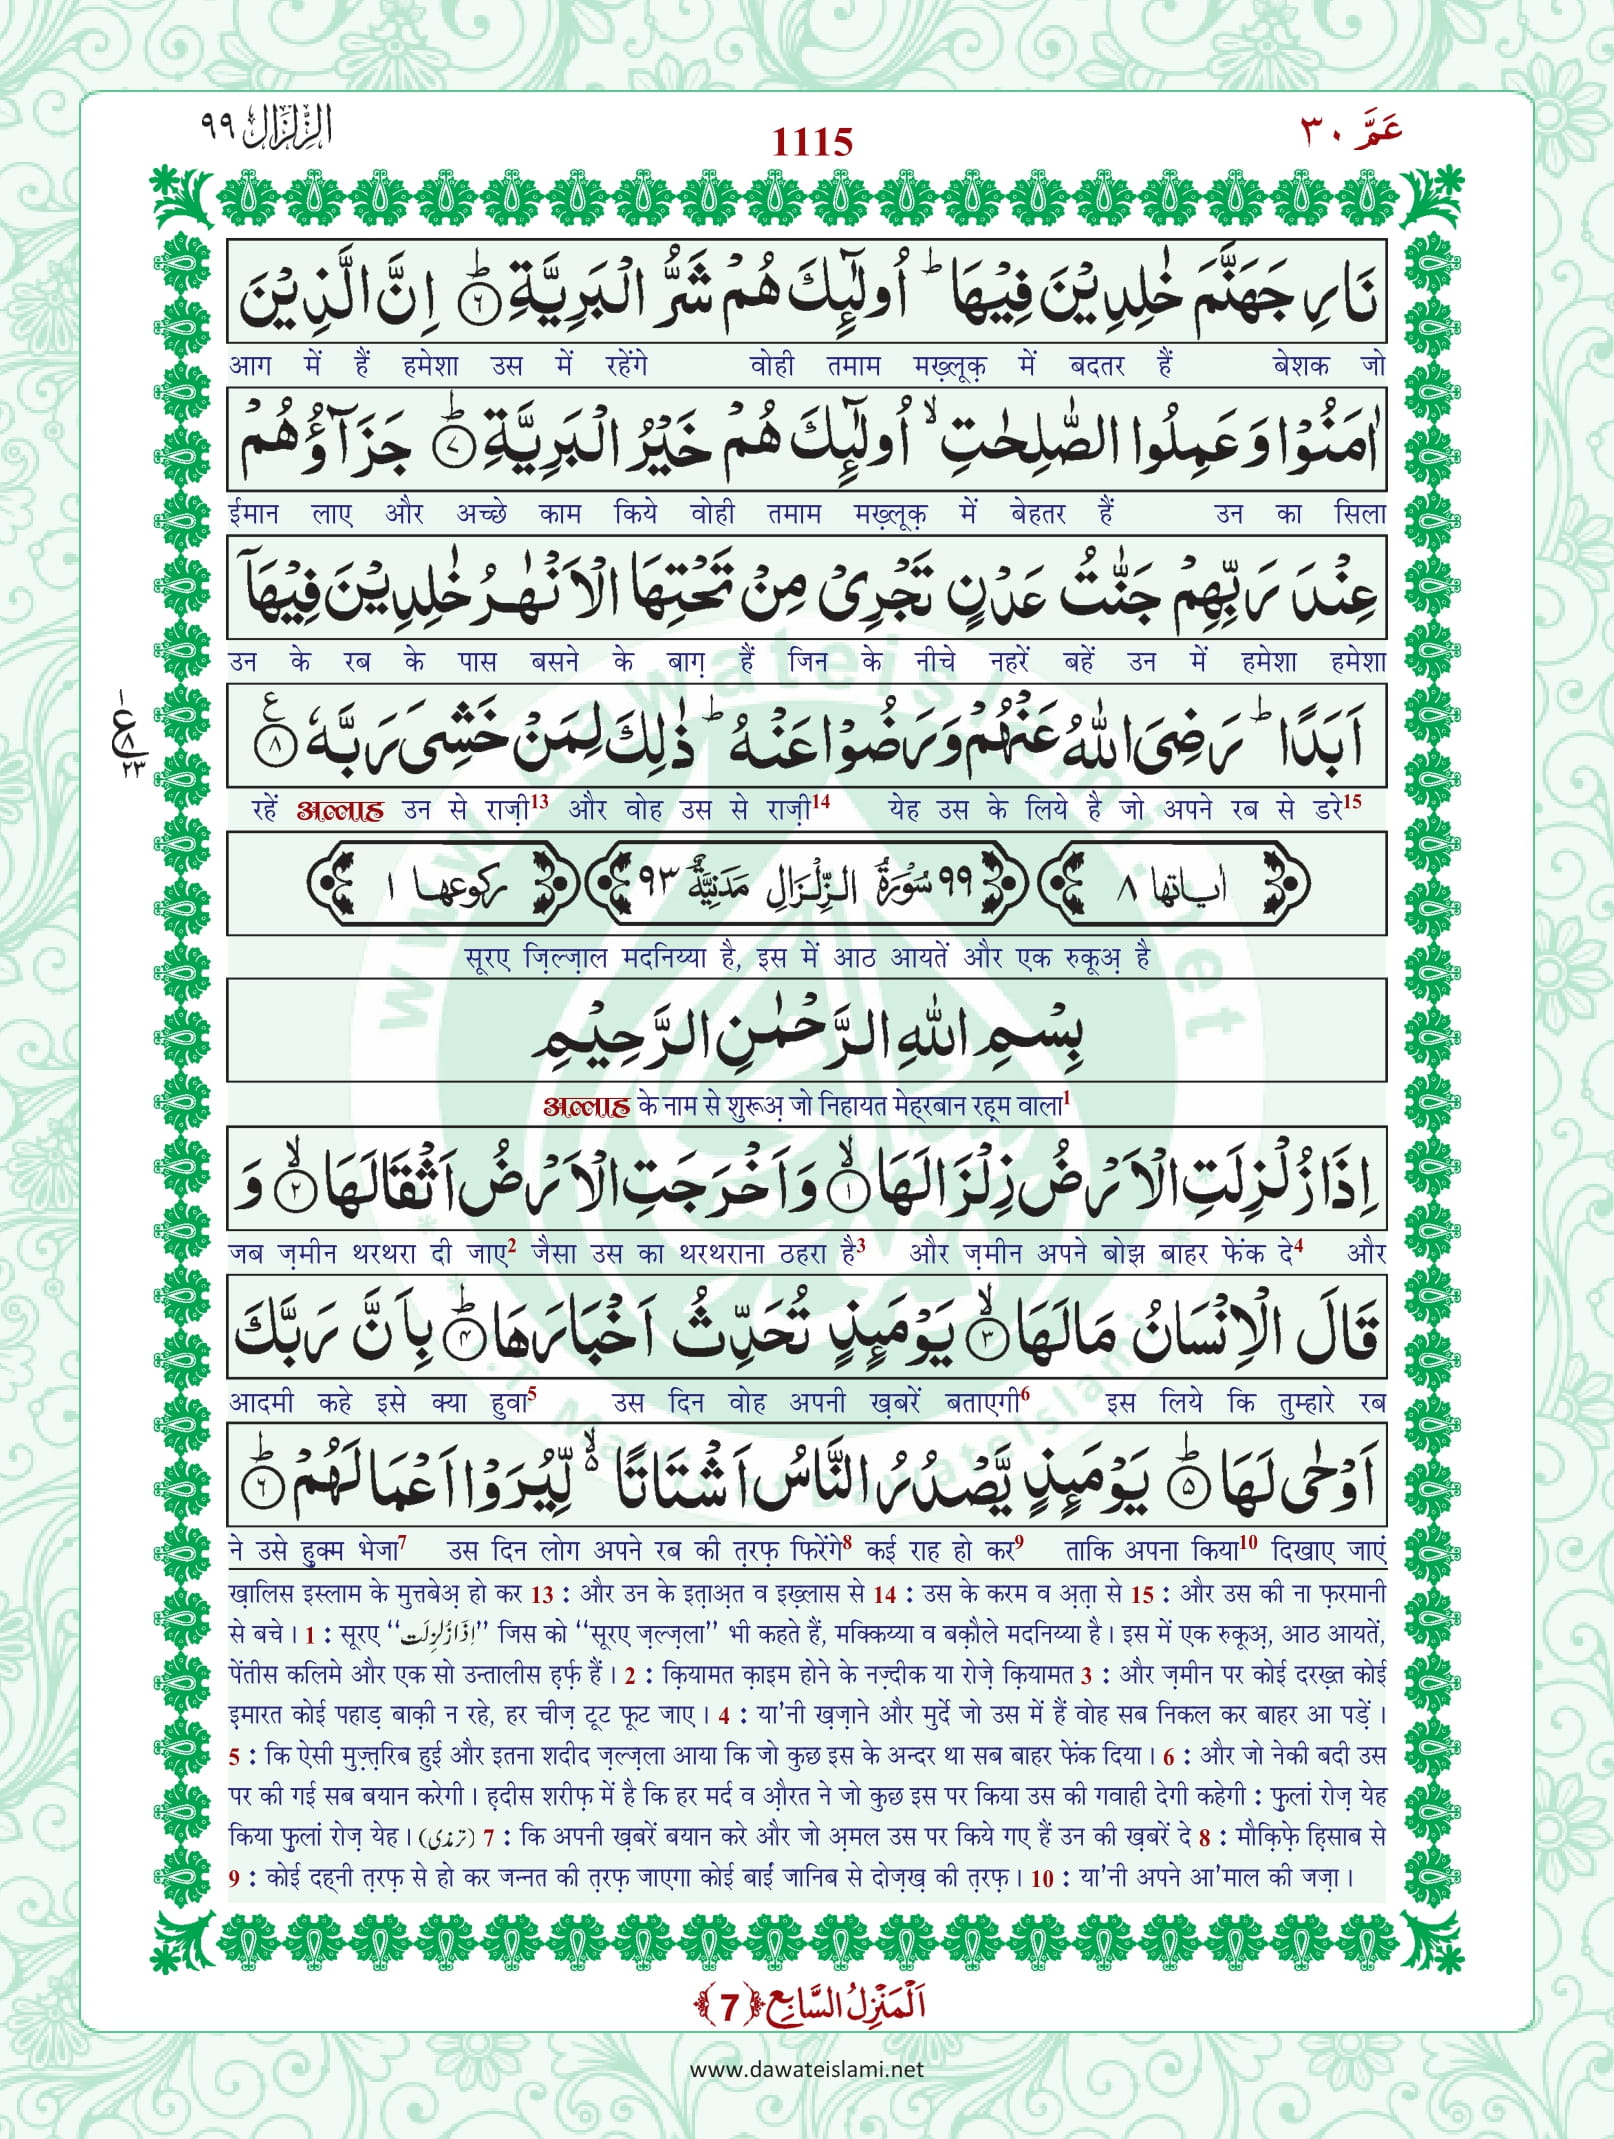 الزِّلْزَال ٩٩
1115
عَمَّ ٣٠
نَارِ جَهَنَّمَ خٰلِدِيْنَ فِيْهَا ؕ اُولٰٓئِكَ هُمْ شَرُّ الْبَرِيَّةِ ؕ۝۶ اِنَّ الَّذِيْنَ
आग में हैं हमेशा उस में रहेंगे वोही तमाम मख़्लूक़ में बदतर हैं बेशक जो
اٰمَنُوْا وَ عَمِلُوا الصّٰلِحٰتِ ۙ اُولٰٓئِكَ هُمْ خَيْرُ الْبَرِيَّةِ ؕ۝۷ جَزَآؤُهُمْ
ईमान लाए और अच्छे काम किये वोही तमाम मख़्लूक़ में बेहतर हैं उन का सिला
عِنْدَ رَبِّهِمْ جَنّٰتُ عَدْنٍ تَجْرِیْ مِنْ تَحْتِهَا الْاَنْهٰرُ خٰلِدِيْنَ فِيْهَاۤ
उन के रब के पास बसने के बाग़ हैं जिन के नीचे नहरें बहें उन में हमेशा हमेशा
اَبَدًا ؕ رَضِیَ اللّٰهُ عَنْهُمْ وَ رَضُوْا عَنْهُ ؕ ذٰلِكَ لِمَنْ خَشِیَ رَبَّهٗ ۝۸ ع
ع ١ ٨ ٢٣
रहें अल्लाह उन से राज़ी13 और वोह उस से राज़ी14 येह उस के लिये है जो अपने रब से डरे15
اٰیاتها ٨ ٩٩ سُوْرَةُ الزِّلْزَالِ مَدَنِيَّةٌ ٩٣ رکوعها ١
सूरए ज़िल्ज़ाल मदनिय्या है, इस में आठ आयतें और एक रुकूअ़ है
بِسْمِ اللّٰهِ الرَّحْمٰنِ الرَّحِيْمِ
अल्लाह के नाम से शुरूअ़ जो निहायत मेह्रबान रह़्म वाला1
اِذَا زُلْزِلَتِ الْاَرْضُ زِلْزَالَهَا ۙ۝۱ وَ اَخْرَجَتِ الْاَرْضُ اَثْقَالَهَا ۙ۝۲ وَ
जब ज़मीन थरथरा दी जाए2 जैसा उस का थरथराना ठहरा है3 और ज़मीन अपने बोझ बाहर फेंक दे4 और
قَالَ الْاِنْسَانُ مَا لَهَا ۙ۝۳ يَوْمَئِذٍ تُحَدِّثُ اَخْبَارَهَا ؕ۝۴ بِاَنَّ رَبَّكَ
आदमी कहे इसे क्या हुवा5 उस दिन वोह अपनी ख़बरें बताएगी6 इस लिये कि तुम्हारे रब
اَوْحٰى لَهَا ؕ۝۵ يَوْمَئِذٍ يَّصْدُرُ النَّاسُ اَشْتَاتًا ۬ۙ لِّيُرَوْا اَعْمَالَهُمْ ؕ۝۶
ने उसे ह़ुक्म भेजा7 उस दिन लोग अपने रब की त़रफ़ फिरेंगे8 कई राह हो कर9 ताकि अपना किया10 दिखाए जाएं
ख़ालिस इस्लाम के मुत्तबेअ़ हो कर 13 : और उन के इत़ाअ़त व इख़्लास से 14 : उस के करम व अ़त़ा से 15 : और उस की ना फ़रमानी
से बचे। 1 : सूरए ‘‘اِذَا زُلْزِلَت’’ जिस को ‘‘सूरए ज़ल्ज़ला’’ भी कहते हैं, मक्किय्या व बक़ौले मदनिय्या है। इस में एक रुकूअ़, आठ आयतें,
पेंतीस कलिमे और एक सो उन्तालीस ह़र्फ़ हैं। 2 : क़ियामत क़ाइम होने के नज़्दीक या रोज़े क़ियामत 3 : और ज़मीन पर कोई दरख़्त कोई
इमारत कोई पहाड़ बाक़ी न रहे, हर चीज़ टूट फूट जाए। 4 : या'नी ख़ज़ाने और मुर्दे जो उस में हैं वोह सब निकल कर बाहर आ पड़ें।
5 : कि ऐसी मुज़्त़रिब हुई और इतना शदीद ज़ल्ज़ला आया कि जो कुछ इस के अन्दर था सब बाहर फेंक दिया। 6 : और जो नेकी बदी उस
पर की गई सब बयान करेगी। ह़दीस शरीफ़ में है कि हर मर्द व औ़रत ने जो कुछ इस पर किया उस की गवाही देगी कहेगी : फ़ुलां रोज़ येह
किया फ़ुलां रोज़ येह। (ترمذی) 7 : कि अपनी ख़बरें बयान करे और जो अ़मल उस पर किये गए हैं उन की ख़बरें दे 8 : मौक़िफ़े ह़िसाब से
9 : कोई दह्नी त़रफ़ से हो कर जन्नत की त़रफ़ जाएगा कोई बाईं जानिब से दोज़ख़ की त़रफ़। 10 : या'नी अपने आ'माल की जज़ा।
اَلْمَنْزِلُ السَّابِع ﴿7﴾
www.dawateislami.net